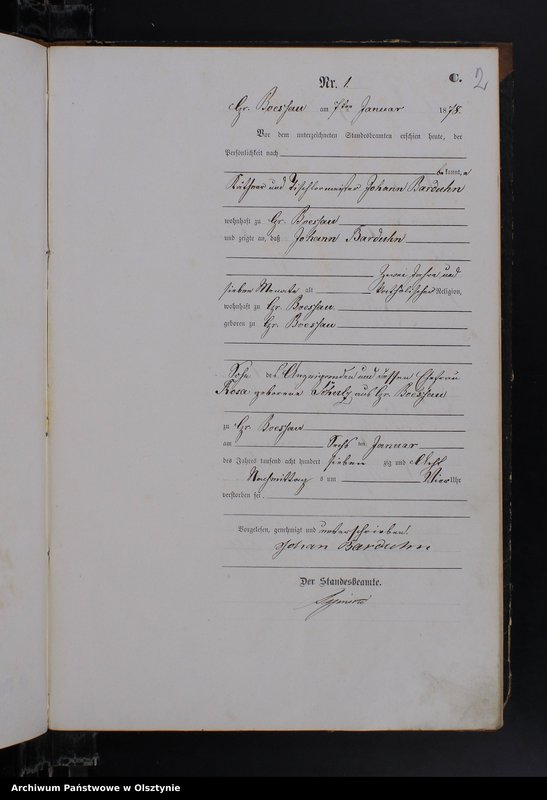 Nr. 1.
C. 2
Gr. Boessau am 7ten Januar 1878.
Vor dem unterzeichneten Standesbeamten erschien heute, der
Persönlichkeit nach
bekannt,
Käthner und Tischlermeister Johann Barduhn
wohnhaft zu Gr. Boessau
und zeigte an, daß Johann Barduhn
zwei Jahre und
sieben Monate alt katholischer Religion,
wohnhaft zu Gr. Boessau
geboren zu Gr. Boessau
Sohn des Anzeigenden und dessen Ehefrau
Rosa geborene aus Gr. Boessau
zu Gr. Boessau
am Sechs ten Januar
des Jahres tausend acht hundert sieben zig und Acht
Nachmittag s um Vier Uhr
verstorben sei
Vorgelesen, genehmigt und unterschrieben.
Johan Barduhn
Der Standesbeamte.
Archiwum Państwowe w Olsztynie